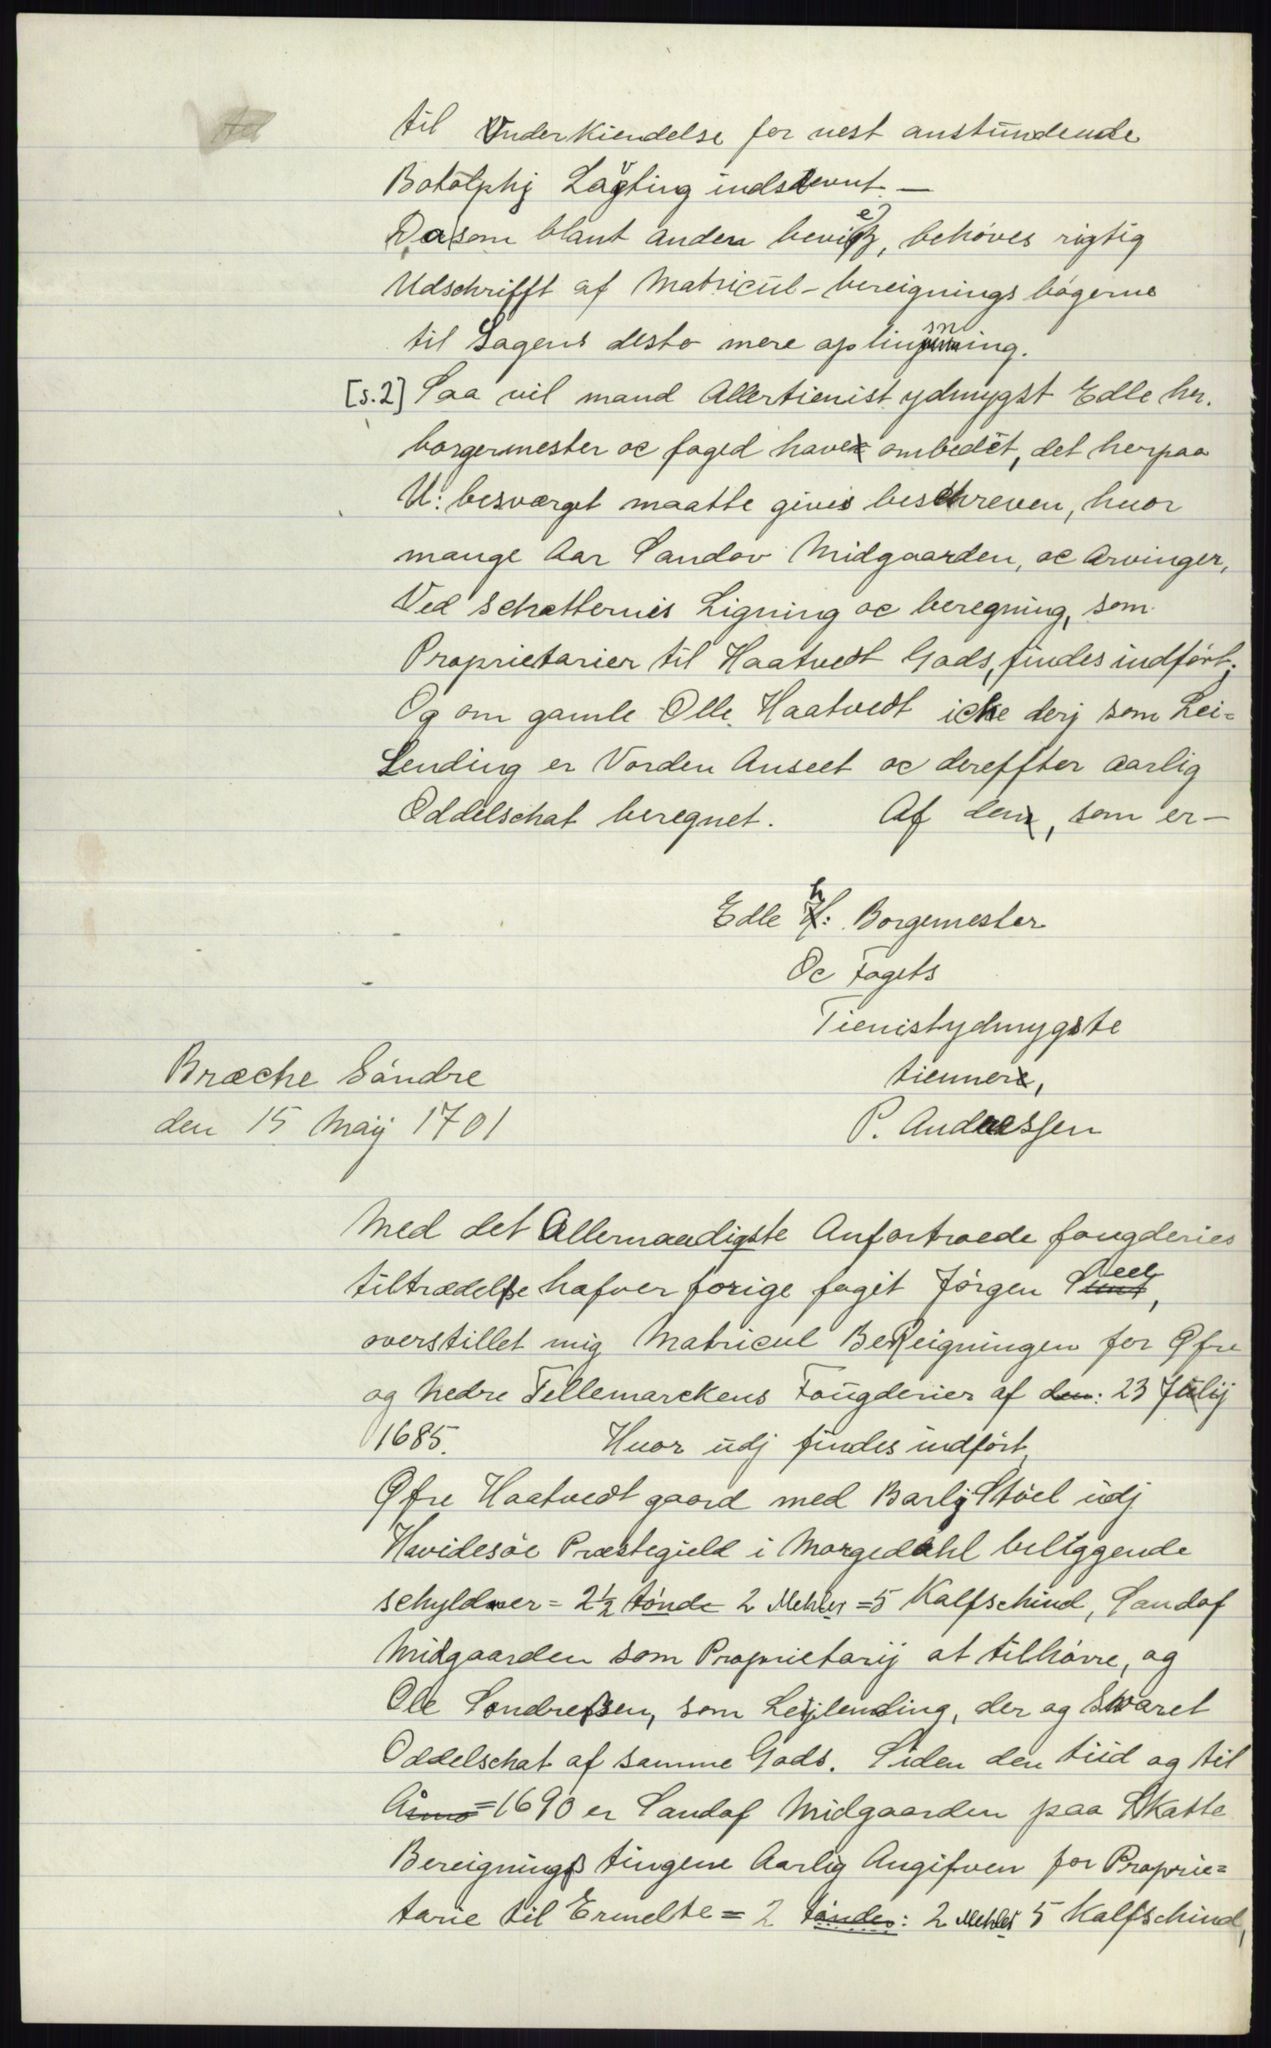 til Underkiendelse for nest anstundende
Botolphj Lavting indstevnt. —
Da som blant anden bevis, behøves rigtig
Udschrifft af Matricul-bereignings bøgerne
til Sagens desto mere oplinsning.
[s.2] Saa vil mand Allertienist ydmygst Edle her.
borgermester oc foged have ombedet, det herpaa
U: besværget maatte givis beschreven, huor
mange Aar Sandov Midgaarden, oc Arvinger,
Ved schatternis Ligning oc beregning, som
Proprietarier til Haatvedt Gods, findes indført;
Og om gamle Olle Haatvedt icke derj som Lei-
Lending er Vorden Anseet oc dereffter aarlig
Oddelschat beregnet. Af den, som er —
Edle h: Borgemester
Oc Fogets
Tienistydmygste
tienner,
Bræche Søndre
den 15 Maij 1701
P. Andressen
Med det Allernaadigste Anfortroede fougderies
tiltrædelse hafver forige fogit Jørgen Sneel,
overstillet mig Matricul BeReigningen for Øfre
og Nedre Tellemarckens Fougderier af den: 23 Julij
1685. Huor udj findes indført,
Øfre Haatvedt gaard med Barlj Støel udj
Havidesøe Præstegield i Morgedahl beliggende
schylder = 2½ tønde 2 Mehler = 5 Kalfschind, Sandof
Midgaarden som Proprietarij at tilhøre, og
Ole Sondressen, som Leylending, der og Swaret
Oddelschat af samme Gods. Siden den tiid og til
Åmo = 1690 er Sandof Midgaarden paa Skatte
Bereignings tingene Aarlig Angifven for Proprie=
tarie til Ermelte = 2 tønder: 2 Mehler 5 Kalfschind,